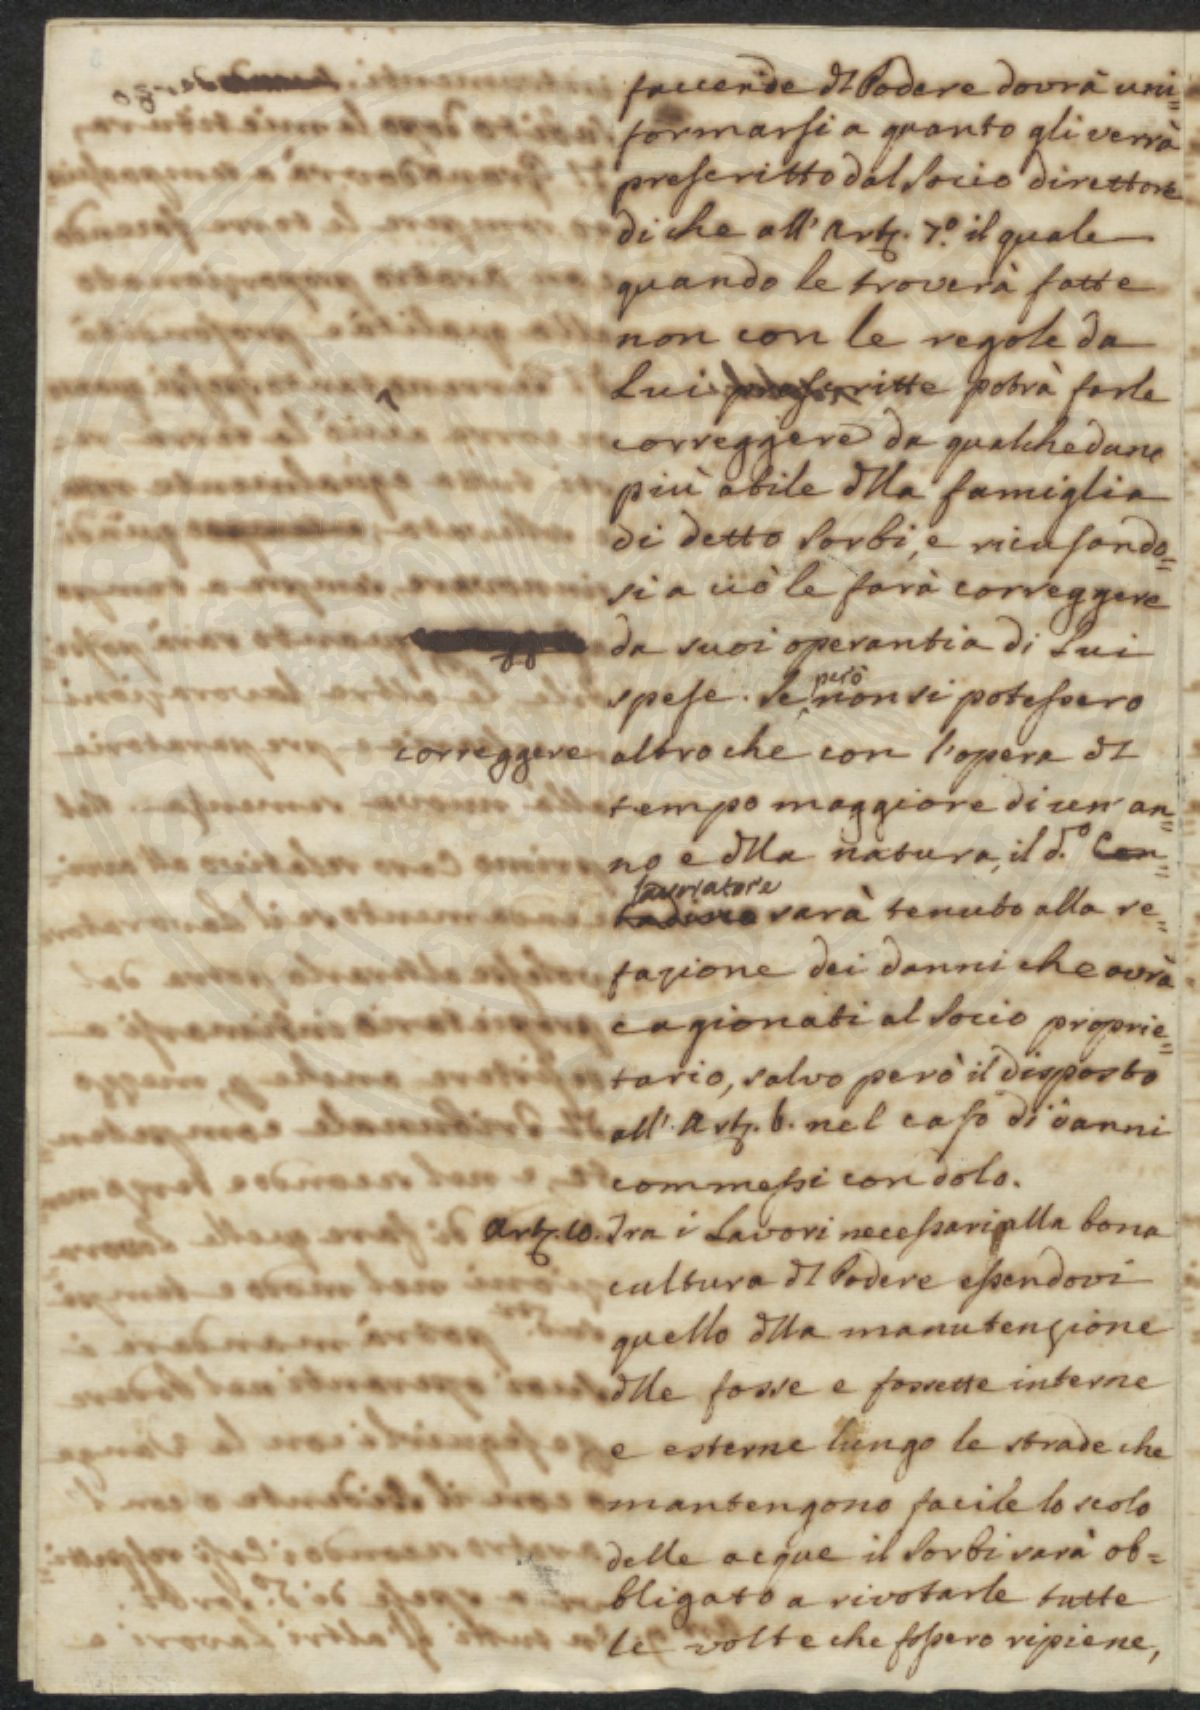 faccende dl Podere dovrà uni=
formarsi a quanto gli verrà
prescritto dal Socio direttore
di che all' Art. 7.º il quale
quando le troverà fatte
non con le regole da
Lui prescritte potrà farle
correggere da qualcheduno
più abile dlla famiglia
di detto Sorbi, e ricusando=
si a ciò le farà correggere
da suoi operanti a di Lui
spese. Se però non si potessero
correggere altro che con l'opera dl
tempo maggiore di un an=
no e dlla natura, il d.º Con=
tadino lavoratore sarà tenuto alla re=
fazione dei danni che avrà
cagionati al Socio proprie=
tario, salvo però il disposto
all'. Art. 6. nel caso di danni
commessi con dolo.
Art. 10. Tra i Lavori necessari alla bona
cultura dl Podere essendovi
quello dlla manutenzione
dlle fosse e fossette interne
e esterne lungo le strade che
mantengono facile lo scolo
delle acque il Sorbi sarà ob=
bligato a rivotarle tutte
le volte che fossero ripiene,